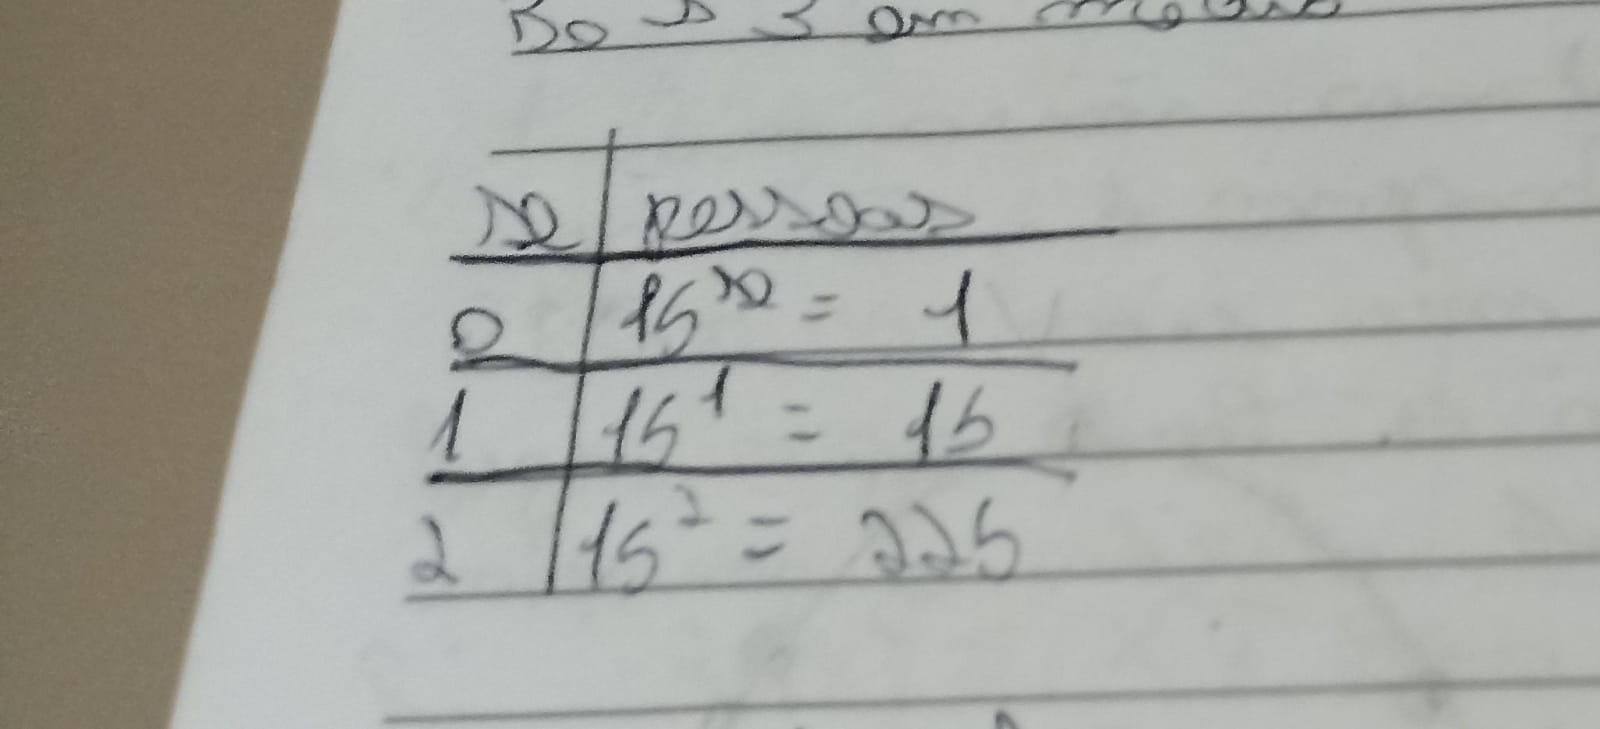 3 em
pessoas
0 15⁰ = 1
1 15¹ = 15
2 15² = 225